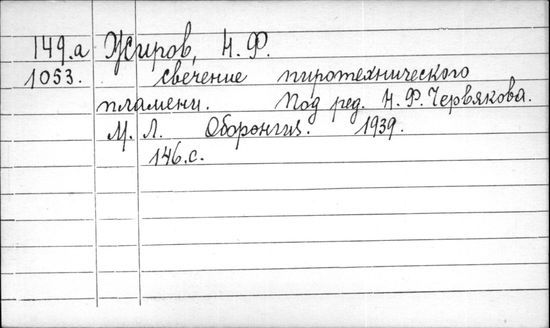 149.а Жиров, Н. Ф.
1053. Свечение пиротехнического
пламени. Под ред. Н. Ф. Червякова.
М. Л. Оборонгиз. 1939.
146.с.